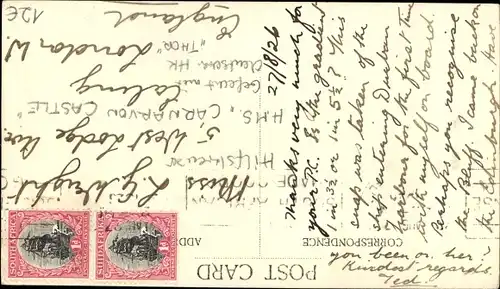 POST CARD
CORRESPONDENCE
ADD
27/8/26
Thanks very much for
your P.C. Is the gradient
in 3½ or 1 in 5½? This
snap was taken of the
ship entering Durban
Harbour for the first time
with myself on board.
Perhaps you recognise
the Bluff. I came back on
the Edinburgh. Have
you been on her?
Kindest regards
Ted.
Miss L.G. Wright
5, West Lodge Ave
Ealing
London W.
England
Hilfskreuzer
HMS „CARNARVON CASTLE"
Gefecht mit
deutschen HK
„THOR"
12€
SOUTH AFRICA
1D
SUIDAFRIKA
1D